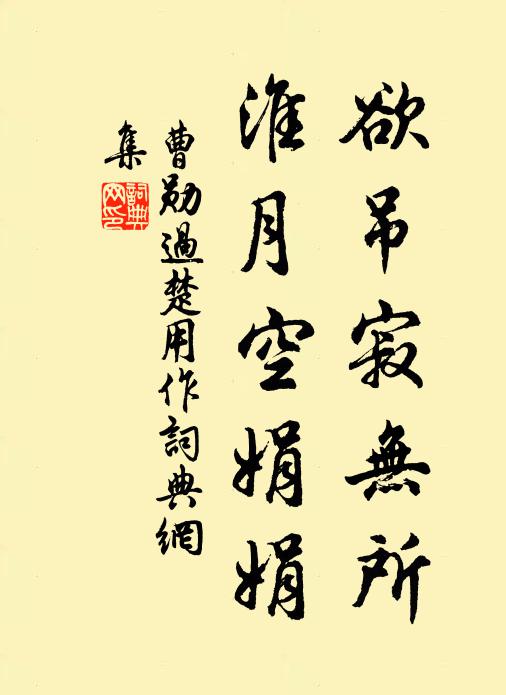 欲吊寂無所
淮月空娟娟
曹勛過楚用作詞典網
集
詞典網印